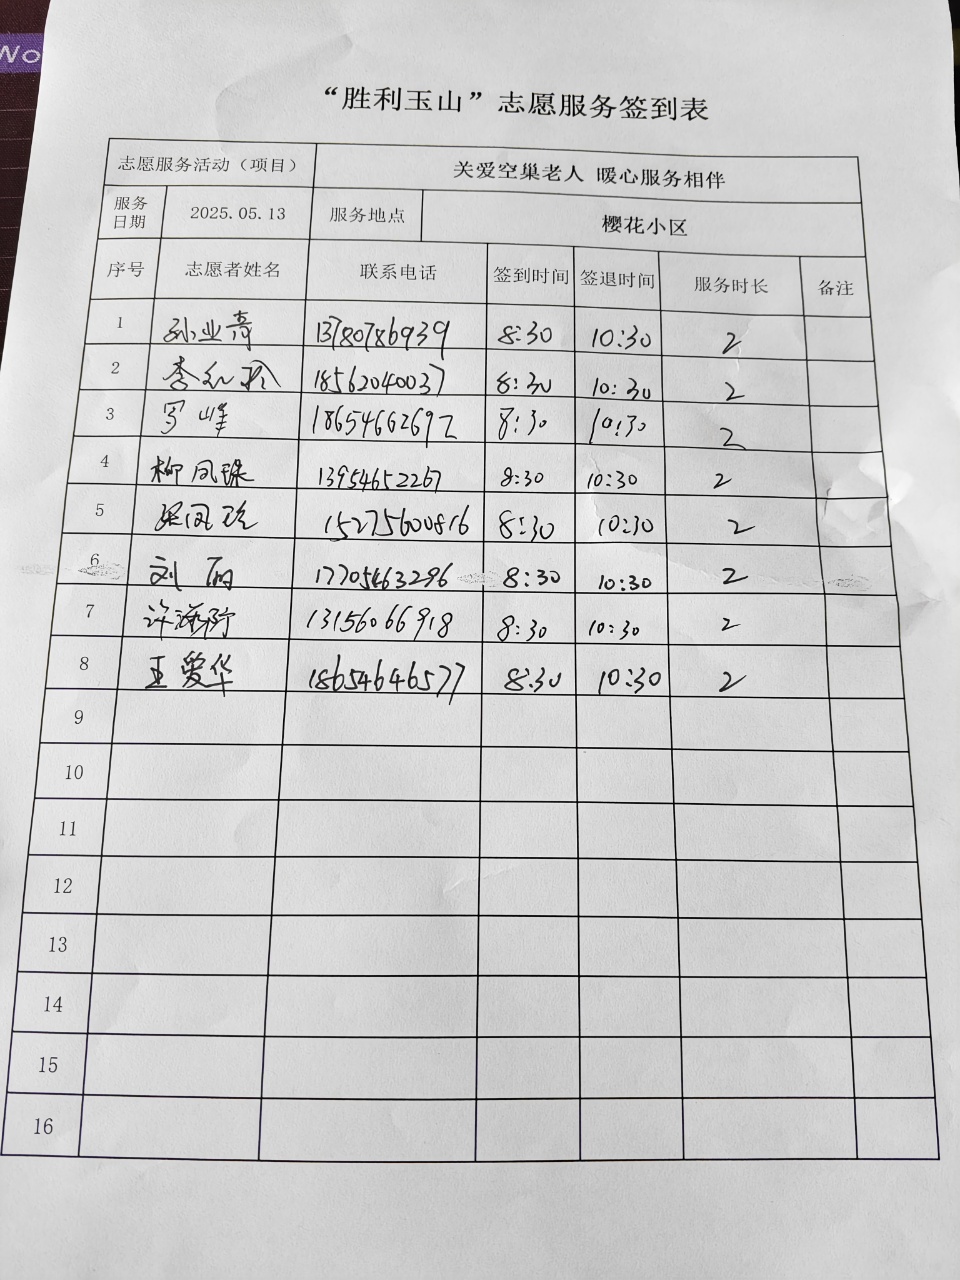 No
“胜利玉山”志愿服务签到表
志愿服务活动（项目） 关爱空巢老人 暖心服务相伴
服务日期 2025.05.13 服务地点 樱花小区
序号 志愿者姓名 联系电话 签到时间 签退时间 服务时长 备注
1 孙业奇 13780786939 8:30 10:30 2
2 李红玲 18562040037 8:30 10:30 2
3 罗峰 18654662692 8:30 10:30 2
4 柳凤珠 13954652267 8:30 10:30 2
5 梁凤玲 15275600816 8:30 10:30 2
6 刘丽 17705463296 8:30 10:30 2
7 许海 13156066918 8:30 10:30 2
8 王爱华 18654646577 8:30 10:30 2
9
10
11
12
13
14
15
16